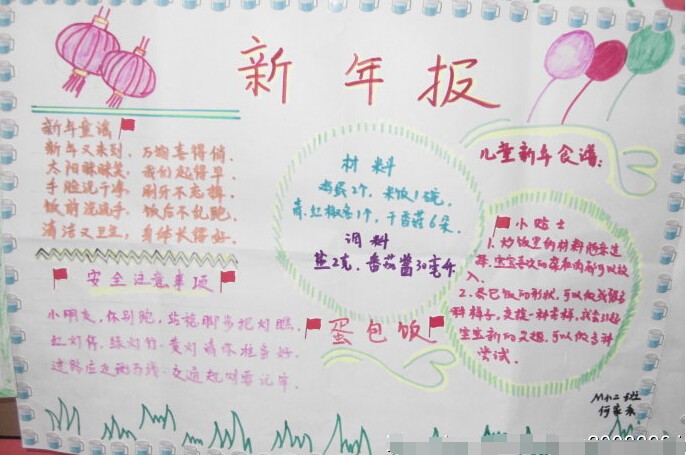 新年报
新年童谣
新年又来到，万物喜得俏，
太阳眯眯笑，我们起得早，
手脸洗干净，刷牙不忘掉，
饭前洗洗手，饭后不乱跑，
清洁又卫生，身体长得好。
安全注意事项
小朋友，你别跑，站稳脚步把灯瞧，
红灯停，绿灯行，黄灯请你准备好，
过路应走斑马线，交通规则要记牢。
材料
鸡蛋2个，米饭1碗，
青、红椒各1个，干香菇6朵。
调料
盐2克，番茄酱30毫升
蛋包饭
儿童新年食谱：
小贴士
1、炒饭里的材料随意选
择，宝宝喜欢的菜和肉都可以放
入。
2、蛋包饭的形状，可以做成很多
种样子，变换一种
宝宝新的兴趣，可以做多种
尝试。
班